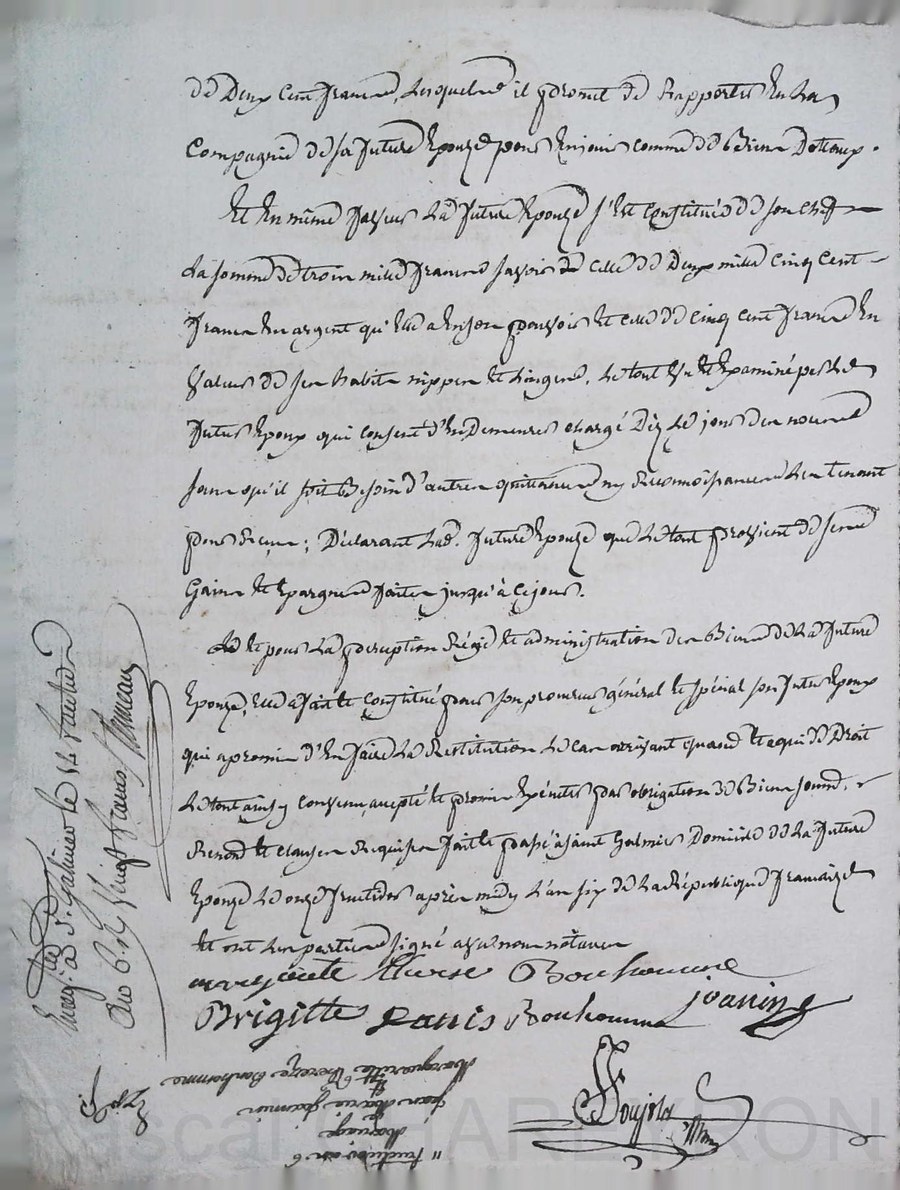 de Deux Cent francs, lesquels il promet de Rapporter En la
Compagnie de sa future Epouze pour En jouir comme de Biens Dotteaux.
Et En même faveur la future Epouze s'est Constituée de son chef
la somme de trois mille francs savoir de celle de Deux mille Cinq Cent
francs En argent qu'elle a En son pouvoir et celle de Cinq Cent francs En
Valeur de ses habits nippes et Linges, le tout Vu et Examiné par le
futur Epoux qui consent d'En Demeurer chargé Dez le jour des noces
sans qu'il soit Besoin d'autres quittances ny Reconnoissances Les tenant
pour Reçues; Déclarant lad. future Epouze que le tout provient de ses
Gains et Epargnes faites jusqu'à Ce jour.
Et pour la perception Régie et administration des Biens de la future
Epouze, elle a fait et Constitué pour son procureur général et spécial son futur Epoux
qui a promis d'En faire la Restitution le cas arrivant quand et a qui de Droit
le tout ainsy Convenu, accepté et promis Exécuter par obligation De Biens soumis,
Renonc. et clauses Requises fait et passé à saint Galmier Domicile de la future
Epouze le onze fructidor après midy L'an six de la République française
et ont les parties signé avec nous notaire
marguerite therese Bonhomme
Brigitte Bonhomme joanin
Soujols
Enregé à St. Galmier le 14 fructidor
an 6. Rç Vingt francs
11 fructidor an 6
Mariage
de
jean Marie joannin
et
Marguerite Thereze Bonhomme
Pascal CHARLEYRON